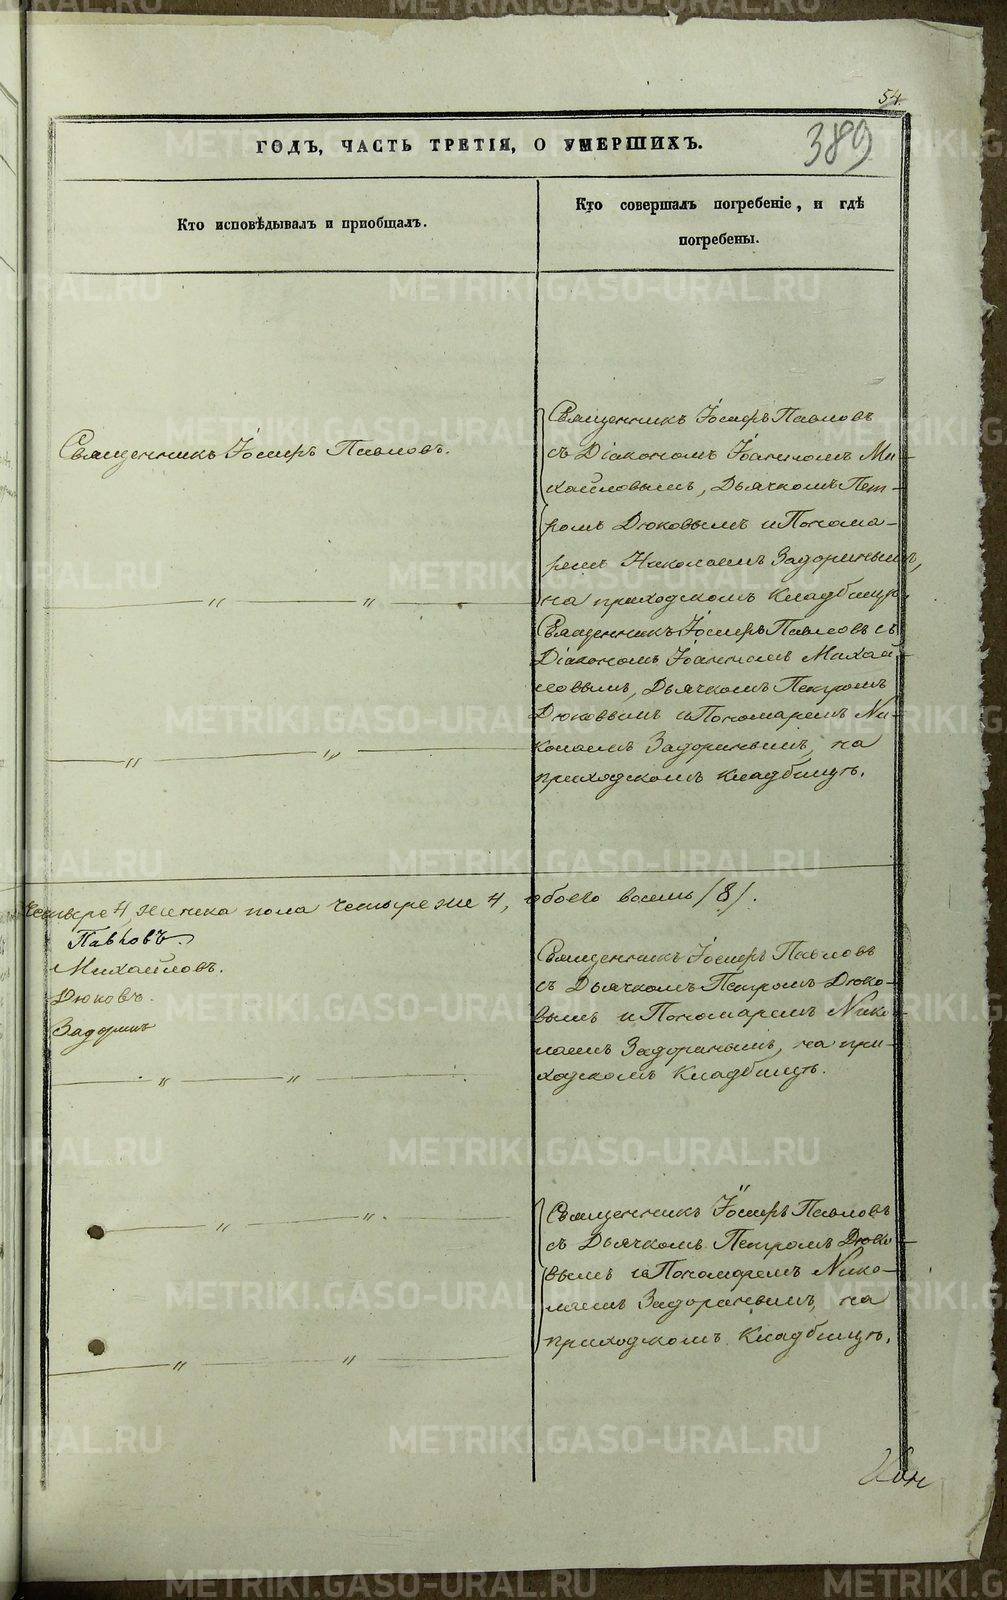 54.
389
ГОДЪ, ЧАСТЬ ТРЕТІЯ, О УМЕРШИХЪ.
Кто исповѣдывалъ и пріобщалъ.
Кто совершалъ погребеніе, и гдѣ
погребены.
Священникъ Іосифъ Павловъ.
Священникъ Іосифъ Павловъ
съ Діакономъ Іоанномъ Ми-
хайловымъ, Дьячкомъ Пет-
ромъ Дюковымъ и Понома-
ремъ Николаемъ Задоринымъ,
на приходскомъ Кладбищѣ.
Священникъ Іосифъ Павловъ съ
Діакономъ Іоанномъ Михай-
ловымъ, Дьячкомъ Петромъ
Дюковымъ и Пономаремъ Ни-
колаемъ Задоринымъ, на
приходскомъ Кладбищѣ.
четыре 4, женска пола четыре же 4, обоего восемь /8/.
Павловъ.
Михайловъ.
Дюковъ.
Задоринъ
Священникъ Іосифъ Павловъ
съ Дьячкомъ Петромъ Дюко-
вымъ и Пономаремъ Нико-
лаемъ Задоринымъ, на при-
ходскомъ Кладбищѣ.
Священникъ Іосифъ Павловъ
съ Дьячкомъ Петромъ Дюко-
вымъ и Пономаремъ Нико-
лаемъ Задоринымъ, на
приходскомъ Кладбищѣ.
METRIKI.GASO-URAL.RU